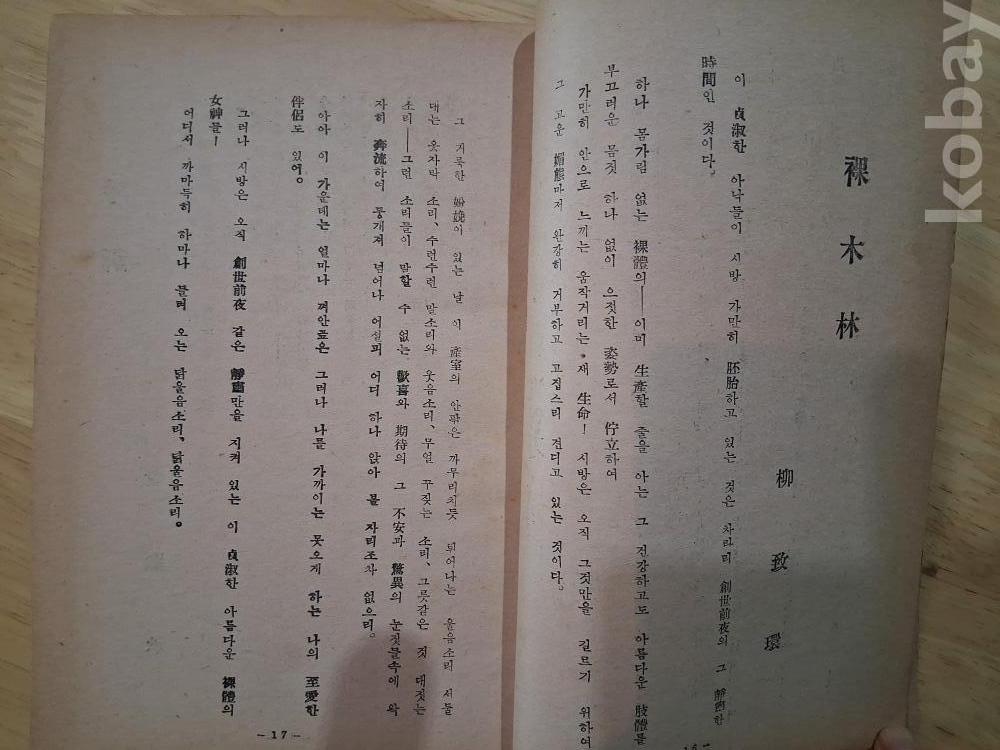 裸木林
柳致環
이 貞淑한 아낙들이 시방 가만히 胚胎하고 있는 것은 차라리 創世前夜의 그 靜謐한
時間인 것이다.
하나 몸가림 없는 裸體의——이미 生產할 줄을 아는 그 건강하고도 아름다운 肢體를
부끄러운 몸짓 하나 없이 으젓한 姿勢로서 佇立하여
가만히 안으로 느끼는 움직거리는 새 生命! 시방은 오직 그것만을 길르기 위하여
그 고운 媚態마저 완강히 거부하고 고집스리 견디고 있는 것이다.
그 거룩한 娩이 있는 날 이 產室의 안팎은 까무리치듯 튀어나는 울음소리 서둘
대는 옷자락 소리, 수런수런 말소리와 웃음소리, 무얼 꾸짖는 소리, 그릇같은 것 대짓는
소리——그런 소리들이 말할 수 없는 歡喜와 期待의 그 不安과 驚異의 눈짓들속에 왁
자히 奔流하여 풍개쳐 넘어나 어실피 어디 하나 앉아 볼 자리조차 없으리.
아아 이 가운데는 얼마나 껴안고싶은 그러나 나를 가까이는 못오게 하는 나의 至愛한
伴侶도 있어.
그러나 시방은 오직 創世前夜 같은 靜謐만을 지켜 있는 이 貞淑한 아름다운 裸體의
女神들!
어디서 까마득히 하마나 들려 오는 닭울음소리, 닭울음소리.
—17—
kobay